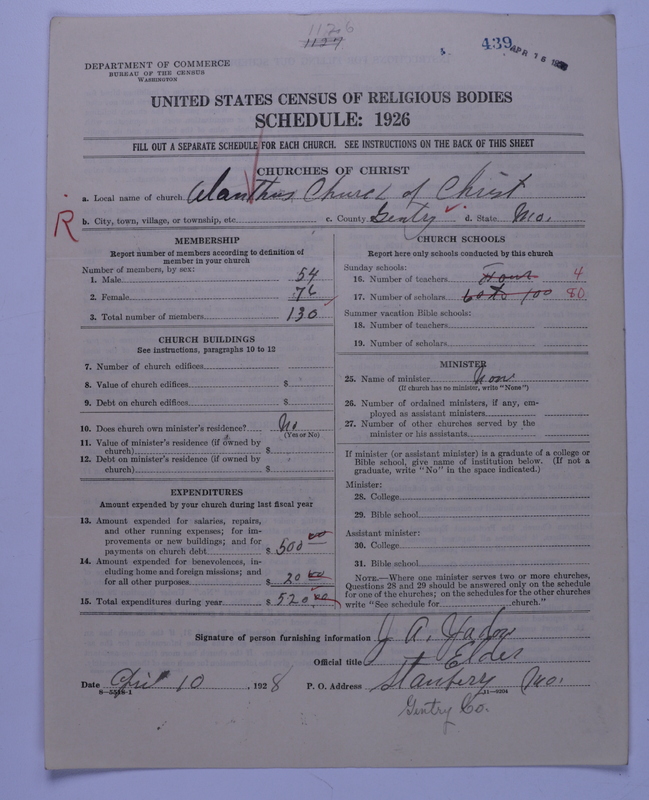 1126
1127
439 APR 16
DEPARTMENT OF COMMERCE
BUREAU OF THE CENSUS
WASHINGTON
UNITED STATES CENSUS OF RELIGIOUS BODIES
SCHEDULE: 1926
FILL OUT A SEPARATE SCHEDULE FOR EACH CHURCH. SEE INSTRUCTIONS ON THE BACK OF THIS SHEET
CHURCHES OF CHRIST
a. Local name of church Alanthus Church of Christ
R
b. City, town, village, or township, etc. c. County Gentry d. State Mo.
MEMBERSHIP
Report number of members according to definition of member in your church
Number of members, by sex:
1. Male 54
2. Female 76
3. Total number of members 130
CHURCH BUILDINGS
See instructions, paragraphs 10 to 12
7. Number of church edifices
8. Value of church edifices $
9. Debt on church edifices $
10. Does church own minister's residence? No
(Yes or No)
11. Value of minister's residence (if owned by
church) $
12. Debt on minister's residence (if owned by
church) $
EXPENDITURES
Amount expended by your church during last fiscal year
13. Amount expended for salaries, repairs,
and other running expenses; for im-
provements or new buildings; and for
payments on church debt $ 500 00
14. Amount expended for benevolences, in-
cluding home and foreign missions; and
for all other purposes $ 20 00
15. Total expenditures during year $ 520.00
CHURCH SCHOOLS
Report here only schools conducted by this church
Sunday schools:
16. Number of teachers Four 4
17. Number of scholars 60 to 100 80
Summer vacation Bible schools:
18. Number of teachers
19. Number of scholars
MINISTER
25. Name of minister Non
(If church has no minister, write "None")
26. Number of ordained ministers, if any, em-
ployed as assistant ministers
27. Number of other churches served by the
minister or his assistants
If minister (or assistant minister) is a graduate of a college or
Bible school, give name of institution below. (If not a
graduate, write "No" in the space indicated.)
Minister:
28. College
29. Bible school
Assistant minister:
30. College
31. Bible school
NOTE.—Where one minister serves two or more churches,
Questions 28 and 29 should be answered only on the schedule
for one of the churches; on the schedules for the other churches
write "See schedule for church."
Signature of person furnishing information J. A.
Official title Elder
Date April 10, 1928 P. O. Address Stanbery Mo.
8—5518-1 11—9204
Gentry Co.